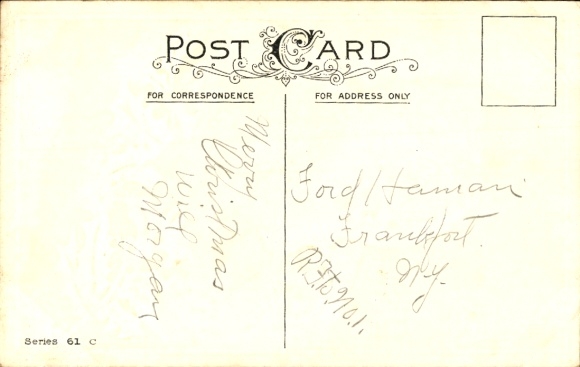 POST CARD
FOR CORRESPONDENCE
FOR ADDRESS ONLY
Merry
Christmas
Will
Morgan
Ford Haman
Frankfort.
Ny.
R.F.D. No. 1.
Series 61 C